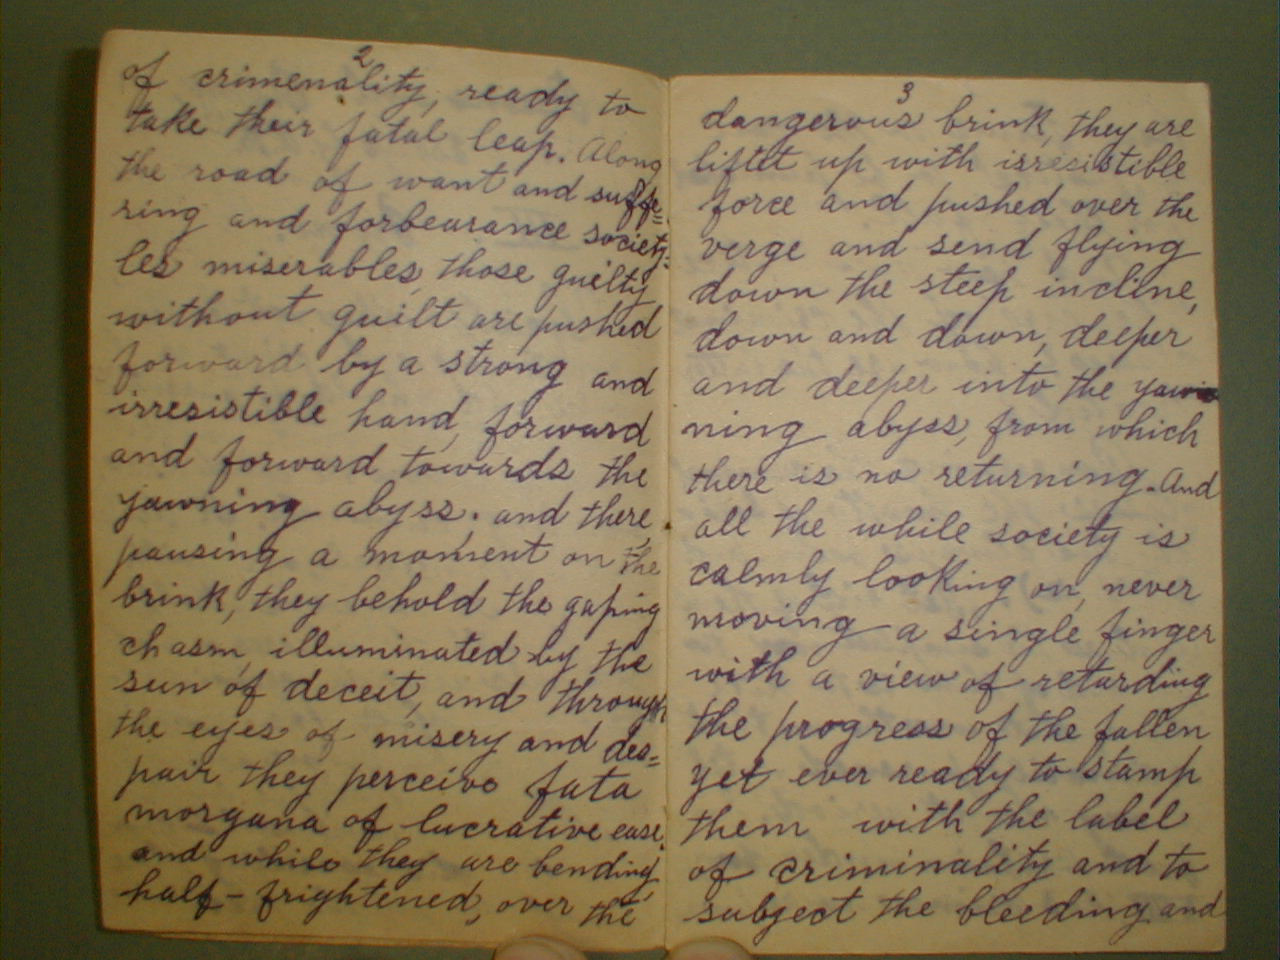 2
of crimenality, ready to
take their fatal leap. Along
the road of want and suffe=
ring and forbearance society
les miserables, those guilty
without guilt are pushed
forward by a strong and
irresistible hand, forward
and forward towards the
yawning abyss. and there,
pausing a moment on the
brink, they behold the gaping
chasm, illuminated by the
sun of deceit, and through
the eyes of misery and des=
pair they perceive fata
morgana of lucrative ease.
and while they are bending,
half-frightened, over the
3
dangerous brink, they are
liftet up with irresistible
force and pushed over the
verge and send flying
down the steep incline,
down and down, deeper
and deeper into the yaw
ning abyss, from which
there is no returning. And
all the while society is
calmly looking on, never
moving a single finger
with a view of retarding
the progress of the fallen
yet ever ready to stamp
them with the label
of criminality and to
subject the bleeding and